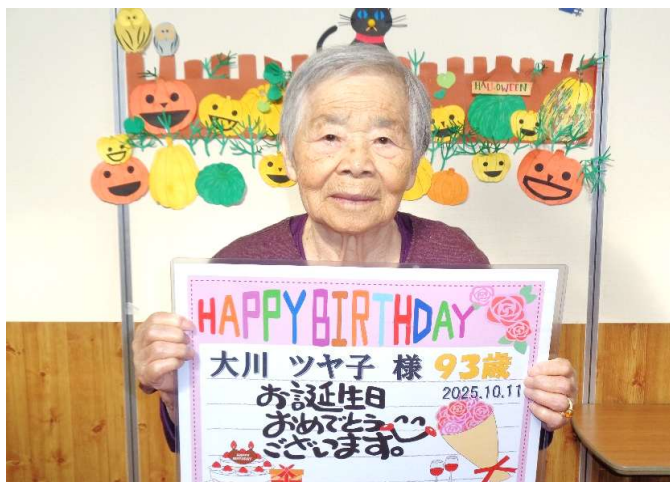 HALLOWEEN
HAPPY BIRTHDAY
大川 ツヤ子 様 93歳
2025.10.11
お誕生日
おめでとう
ございます。